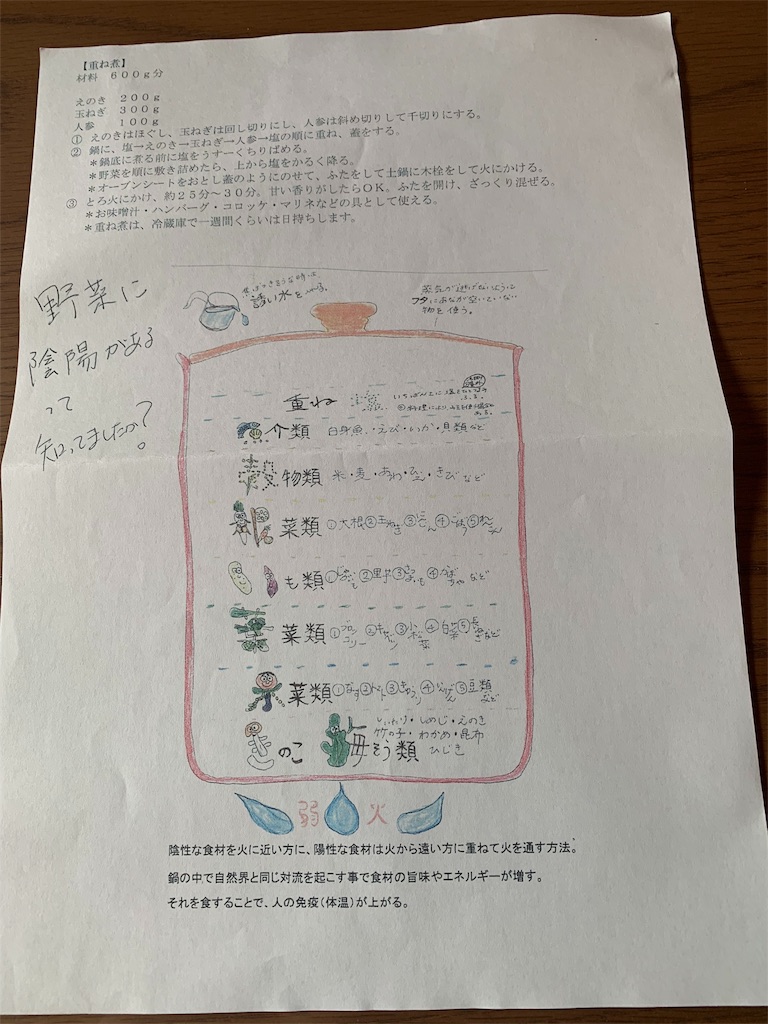 【重ね煮】
材料　６００ｇ分
えのき　２００ｇ
玉ねぎ　３００ｇ
人参　　１００ｇ
① えのきはほぐし、玉ねぎは回し切りにし、人参は斜め切りして千切りにする。
② 鍋に、塩→えのき→玉ねぎ→人参→塩の順に重ね、蓋をする。
＊鍋底に煮る前に塩をうすーくちりばめる。
＊野菜を順に敷き詰めたら、上から塩をかるく降る。
＊オーブンシートをおとし蓋のようにのせて、ふたをして土鍋に木栓をして火にかける。
③ とろ火にかけ、約２５分～３０分。甘い香りがしたらＯＫ。ふたを開け、ざっくり混ぜる。
＊お味噌汁・ハンバーグ・コロッケ・マリネなどの具として使える。
＊重ね煮は、冷蔵庫で一週間くらいは日持ちします。
野菜に
陰陽がある
って
知ってましたか？
誘い水を入れる。
蒸気が逃げないように
フタにあなが空いていない
物を使う。
重ね
介類 白身魚・えび・いか・貝類など
穀物類 米・麦・あわ・ひえ・きび など
菜類 ①大根②玉ねぎ③にんじん④ごぼう⑤れんこん
も類 ①じゃがいも②里芋③さつまいも④かぼちゃ など
菜類 ①ブロッコリー②キャベツ③小松菜④白菜⑤長ネギなど
菜類 ①なす②トマト③きゅうり④いんげん⑤豆類など
きのこ しいたけ・しめじ・えのき
竹の子・わかめ・昆布
海そう類 ひじき
弱火
陰性な食材を火に近い方に、陽性な食材は火から遠い方に重ねて火を通す方法。
鍋の中で自然界と同じ対流を起こす事で食材の旨味やエネルギーが増す。
それを食することで、人の免疫（体温）が上がる。